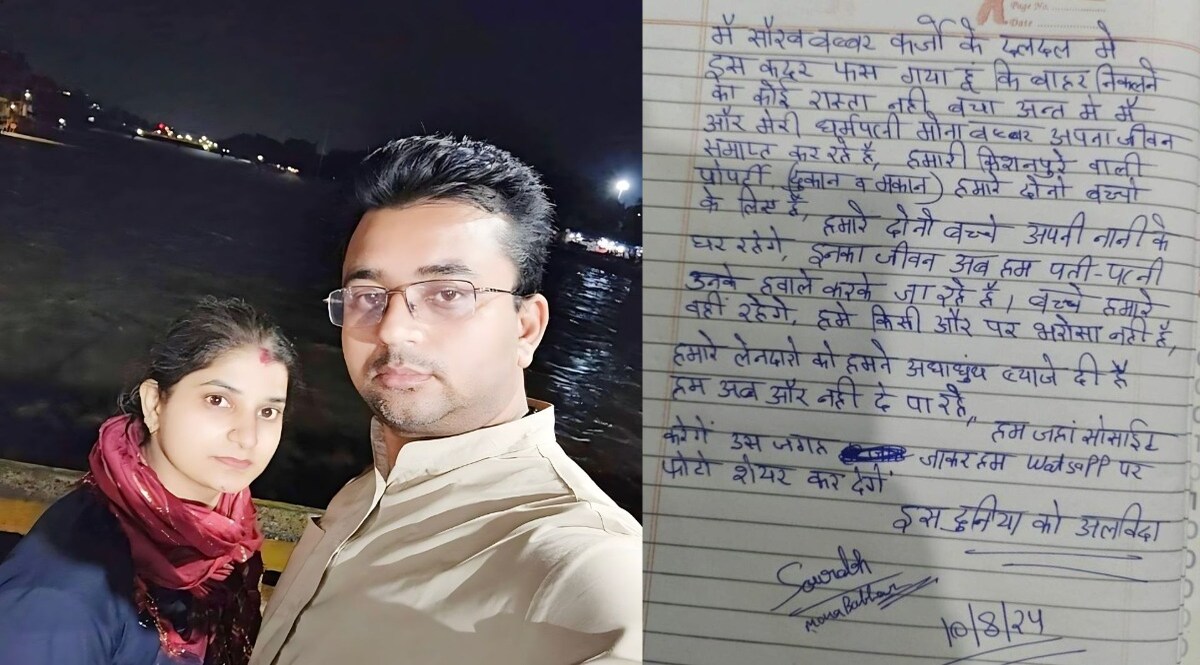 Page No.
Date
मैं सौरव बब्बर कर्जो के दलदल मे
इस कदर फस गया हूं कि बाहर निकलने
का कोई रास्ता नही बचा अन्त मे मैं
और मेरी धर्मपत्नी मोना बब्बर अपना जीवन
समाप्त कर रहे है, हमारी किशनपुरे वाली
प्रोपर्टी (दुकान व मकान) हमारे दोनो बच्चो
के लिए है, हमारे दोनो बच्चे अपनी नानी के
घर रहेगे, इनका जीवन अब हम पती-पत्नी
उनके हवाले करके जा रहे है। बच्चे हमारे
वहीं रहेगे, हमे किसी और पर भरोसा नही है,
हमारे लेनदारो को हमने अंधाधुंध ब्याजे दी है
हम अब और नही दे पा रहे, हम जहां सोसाईट
करेगें उस जगह जाकर हम Watsapp पर
फोटो शेयर कर देगें
इस दुनिया को अलविदा
Saurabh
Mona Babbar
10/8/24